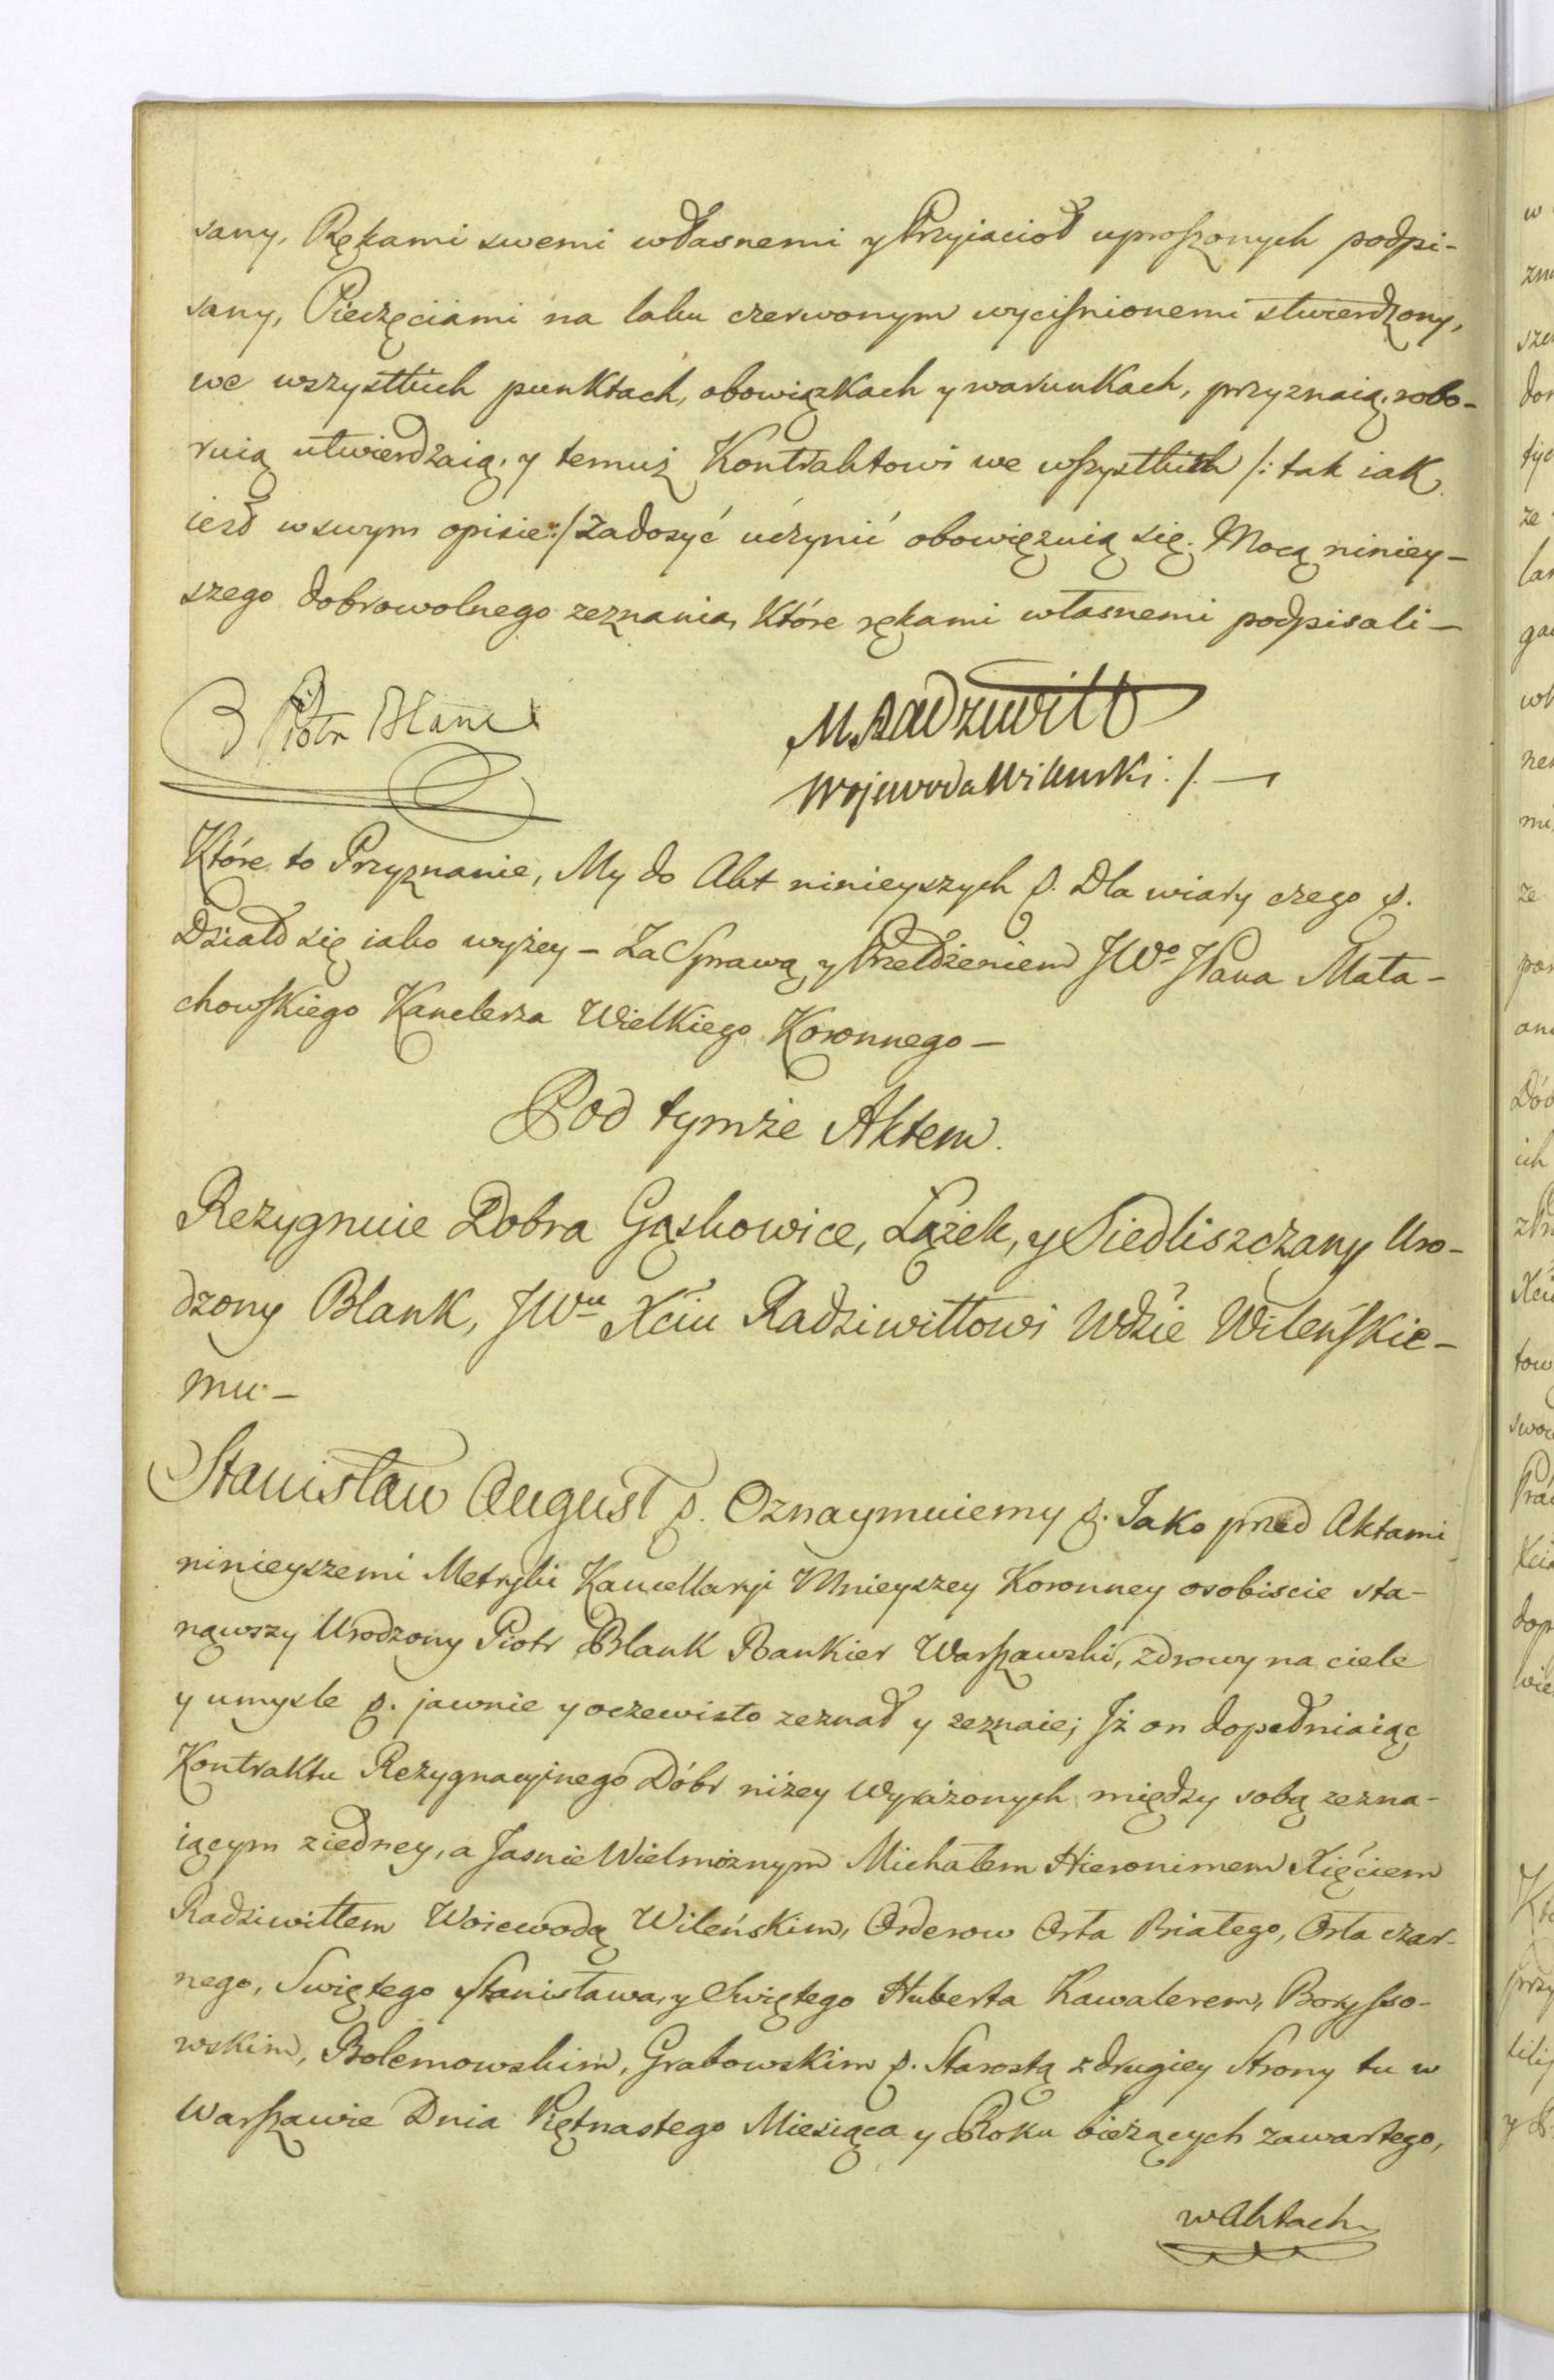 sany, Rękami swemi własnemi y Przyiacioł uproszonych podpi-
sany, Pieczęciami na laku czerwonym wyciśnionemi stwierdzony,
we wszystkich punktach, obowiązkach y warunkach, przyznaią, robo-
ruią utwierdzaią, y temuż Kontraktowi we wszystkich /: tak iak
iest w swym opisie :/ zadosyć uczynić obowięzuią się. Mocą niniey-
szego dobrowolnego zeznania, które rękami własnemi podpisali -
Piotr Blanc
M Radziwiłł
Wojewoda Wilenski ./. -
Które to Przyznanie, My do Akt ninieyszych p. Dla wiary czego p.
Działo się iako wyżey - Za Sprawą y Przełożeniem JWo JPana Mała-
chowskiego Kanclerza Wielkiego Koronnego -
Pod tymże Aktem.
Rezygnuie Dobra Gąskowice, Łążek, y Siedliszczany Uro-
dzony Blank, JWu Xciu Radziwiłłowi Wdzie Wileńskie-
mu. -
Stanisław August p. Oznaymuiemy p. Jako przed Aktami
ninieyszemi Metryki Kancellaryi Mnieyszey Koronney osobiscie sta-
nąwszy Urodzony Piotr Blank Bankier Warszawski, zdrowy na ciele
y umysle p. jawnie y oczewisto zeznał y zeznaie; Jż on dopełniaiąc
Kontraktu Rezygnacyjnego Dóbr niżey wyrażonych między sobą zezna-
iącym z iedney, a Jasnie Wielmożnym Michałem Hieronimem Xięciem
Radziwiłłem Woiewodą Wileńskim, Orderow Orła Białego, Orła czar-
nego, Swiętego Stanisława, y Swiętego Huberta Kawalerem, Boryso-
wskim, Bolemowskim, Grabowskim p. Starostą z drugiey Strony tu w
Warszawie Dnia Piętnastego Miesiąca y Roku bieżących zawartego,
w Aktach